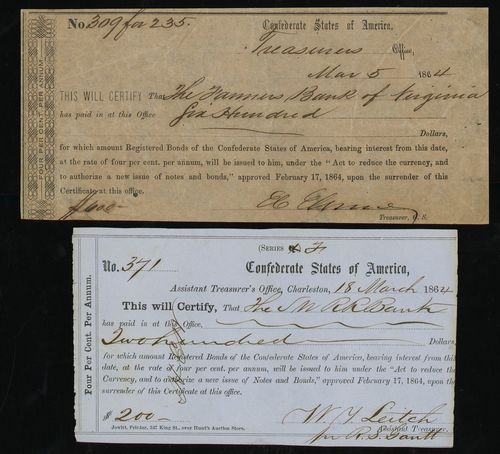 No. 309 for 235. Confederate States of America,
Treasurers Office,
Mar 5 1864
THIS WILL CERTIFY That The Farmers Bank of Virginia
has paid in at this Office Six Hundred
Dollars,
for which amount Registered Bonds of the Confederate States of America, bearing interest from this date,
at the rate of four per cent. per annum, will be issued to him, under the "Act to reduce the currency, and
to authorize a new issue of notes and bonds," approved February 17, 1864, upon the surrender of this
Certificate at this office.
Treasurer, C. S.
FOUR PER CENT. PER ANNUM.
(SERIES F
No. 371 Confederate States of America,
Assistant Treasurer's Office, Charleston, 18 March 1864
This will Certify, That The S W R R Bank
has paid in at this Office,
Two hundred Dollars,
for which amount Registered Bonds of the Confederate States of America, bearing interest from this
date, at the rate of four per cent. per annum, will be issued to him under the "Act to reduce the
Currency, and to authorize a new issue of Notes and Bonds," approved February 17, 1864, upon the
surrender of this Certificate at this office.
$ 200-
W. Y. Leitch
Assistant Treasurer.
Jowitt, Printer, 347 King St., over Hunt's Auction Store.
per R. S. Gantt
Four Per Cent. Per Annum.